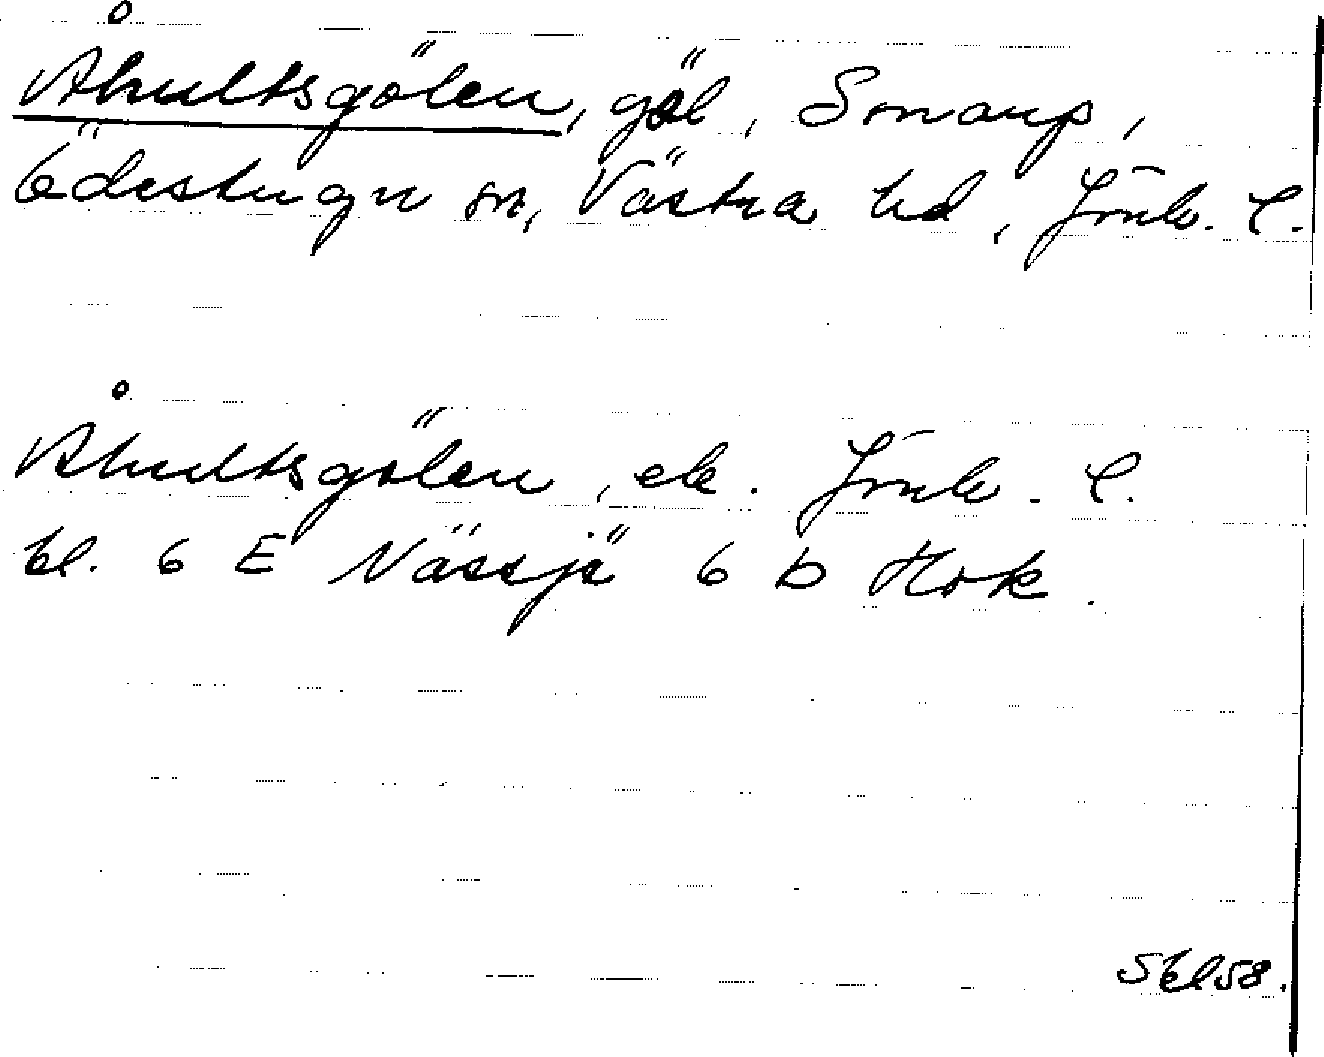 Åhultsgölen, göl, Sonarp,
Ödestugu sn, Västra hd, Jönk. l.
Åhultsgölen, ek. Jönk. l.
bl. 6 E Nässjö 6 b Hok.